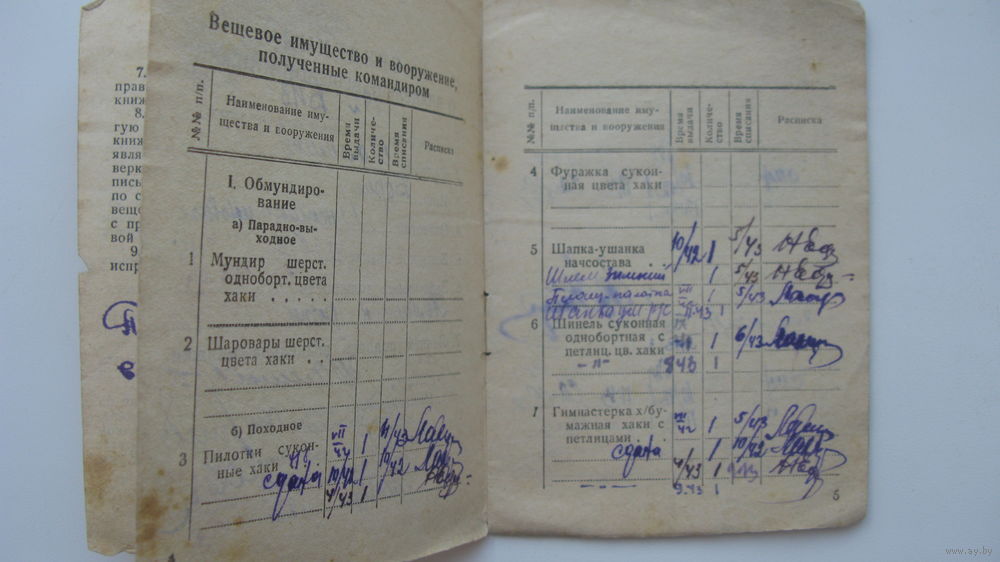 7.
прав
книж
8.
гую
книж
явля
верк
письм
по с
веще
с пр
вой
9.
испр
Вещевое имущество и вооружение,
полученные командиром
№№ п/п.
Наименование иму-
щества и вооружения
Время
выдачи
Количе-
ство
Время
списания
Расписка
I. Обмундиро-
вание
а) Парадно-вы-
ходное
1 Мундир шерст.
одноборт. цвета
хаки . . . . .
2 Шаровары шерст.
цвета хаки . .
б) Походное
3 Пилотки сукон- VII/42 1 11/43
ные хаки
сдата 10/42 1 10/42
4/43 1
4
№№ п/п.
Наименование иму-
щества и вооружения
Время
выдачи
Количе-
ство
Время
списания
Расписка
4 Фуражка сукон-
ная цвета хаки
5 Шапка-ушанка 10/42 1 5/43
начсостава . .
Шлем зимний 1 5/43
Плащ-палатка VII 1 5/43
Шапка 1
6 Шинель суконная
однобортная с 1 6/43
петлиц. цв. хаки
-„- 943 1
1 Гимнастерка х/бу- VII/42 1 5/43
мажная хаки с
петлицами . .
сдата 1 10/42
4/43 1 9.43
-„- 9.43 1
5
www.ay.by